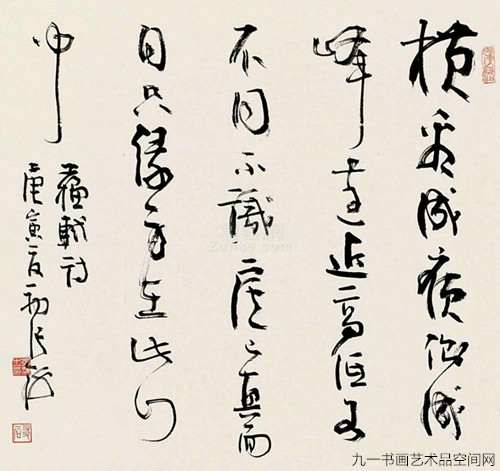 横看成嶺側成
峰遠近高低各
不同不識廬山真面
目只緣身在此山
中
蘇軾詩
庚寅夏初
九一书画艺术品空间网